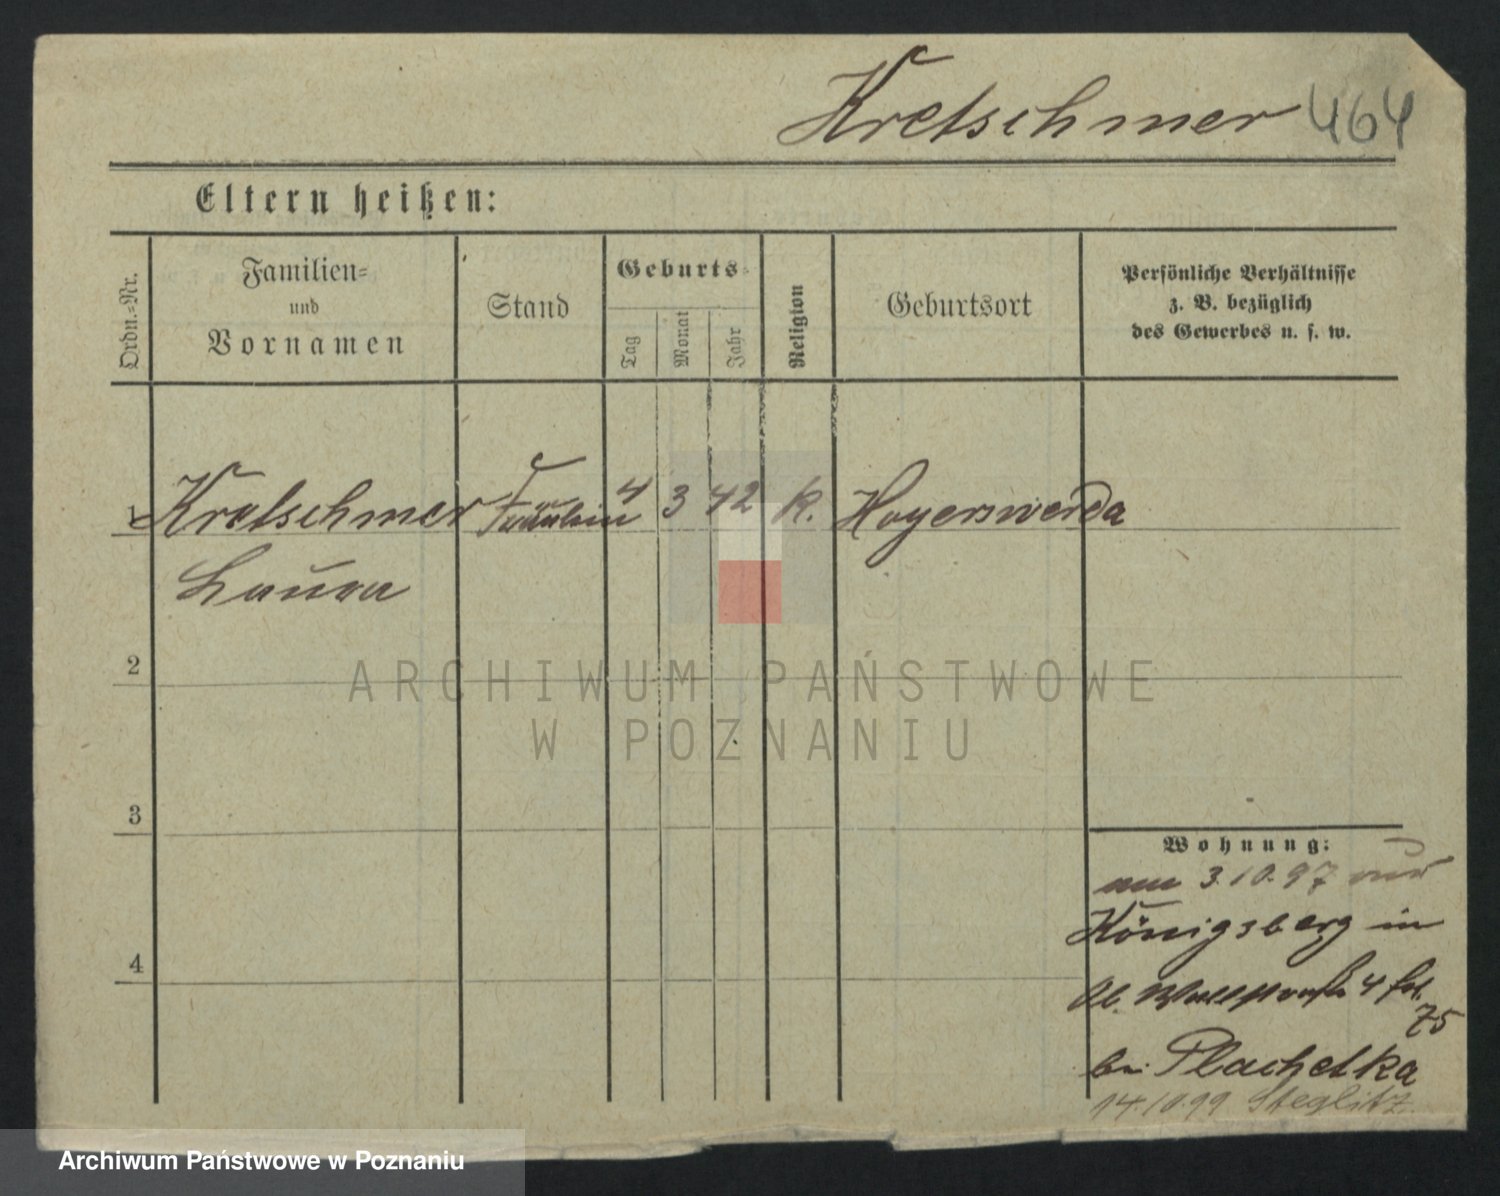 Kretschmer 464
Eltern heißen:
Ordn.-Nr.
Familien-
und
Vornamen
Stand
Geburts-
Tag
Monat
Jahr
Religion
Geburtsort
Persönliche Verhältnisse
z. B. bezüglich
des Gewerbes u. s. w.
1 Kretschmer Fräulein 4 3 42 k. Hoyerswerda
Laura
2
ARCHIWUM PAŃSTWOWE
W POZNANIU
3
Wohnung:
am 3.10.97 aus
Königsberg in
4
4 fol.
75
bei Plachetka
14.10.99 Steglitz
Archiwum Państwowe w Poznaniu